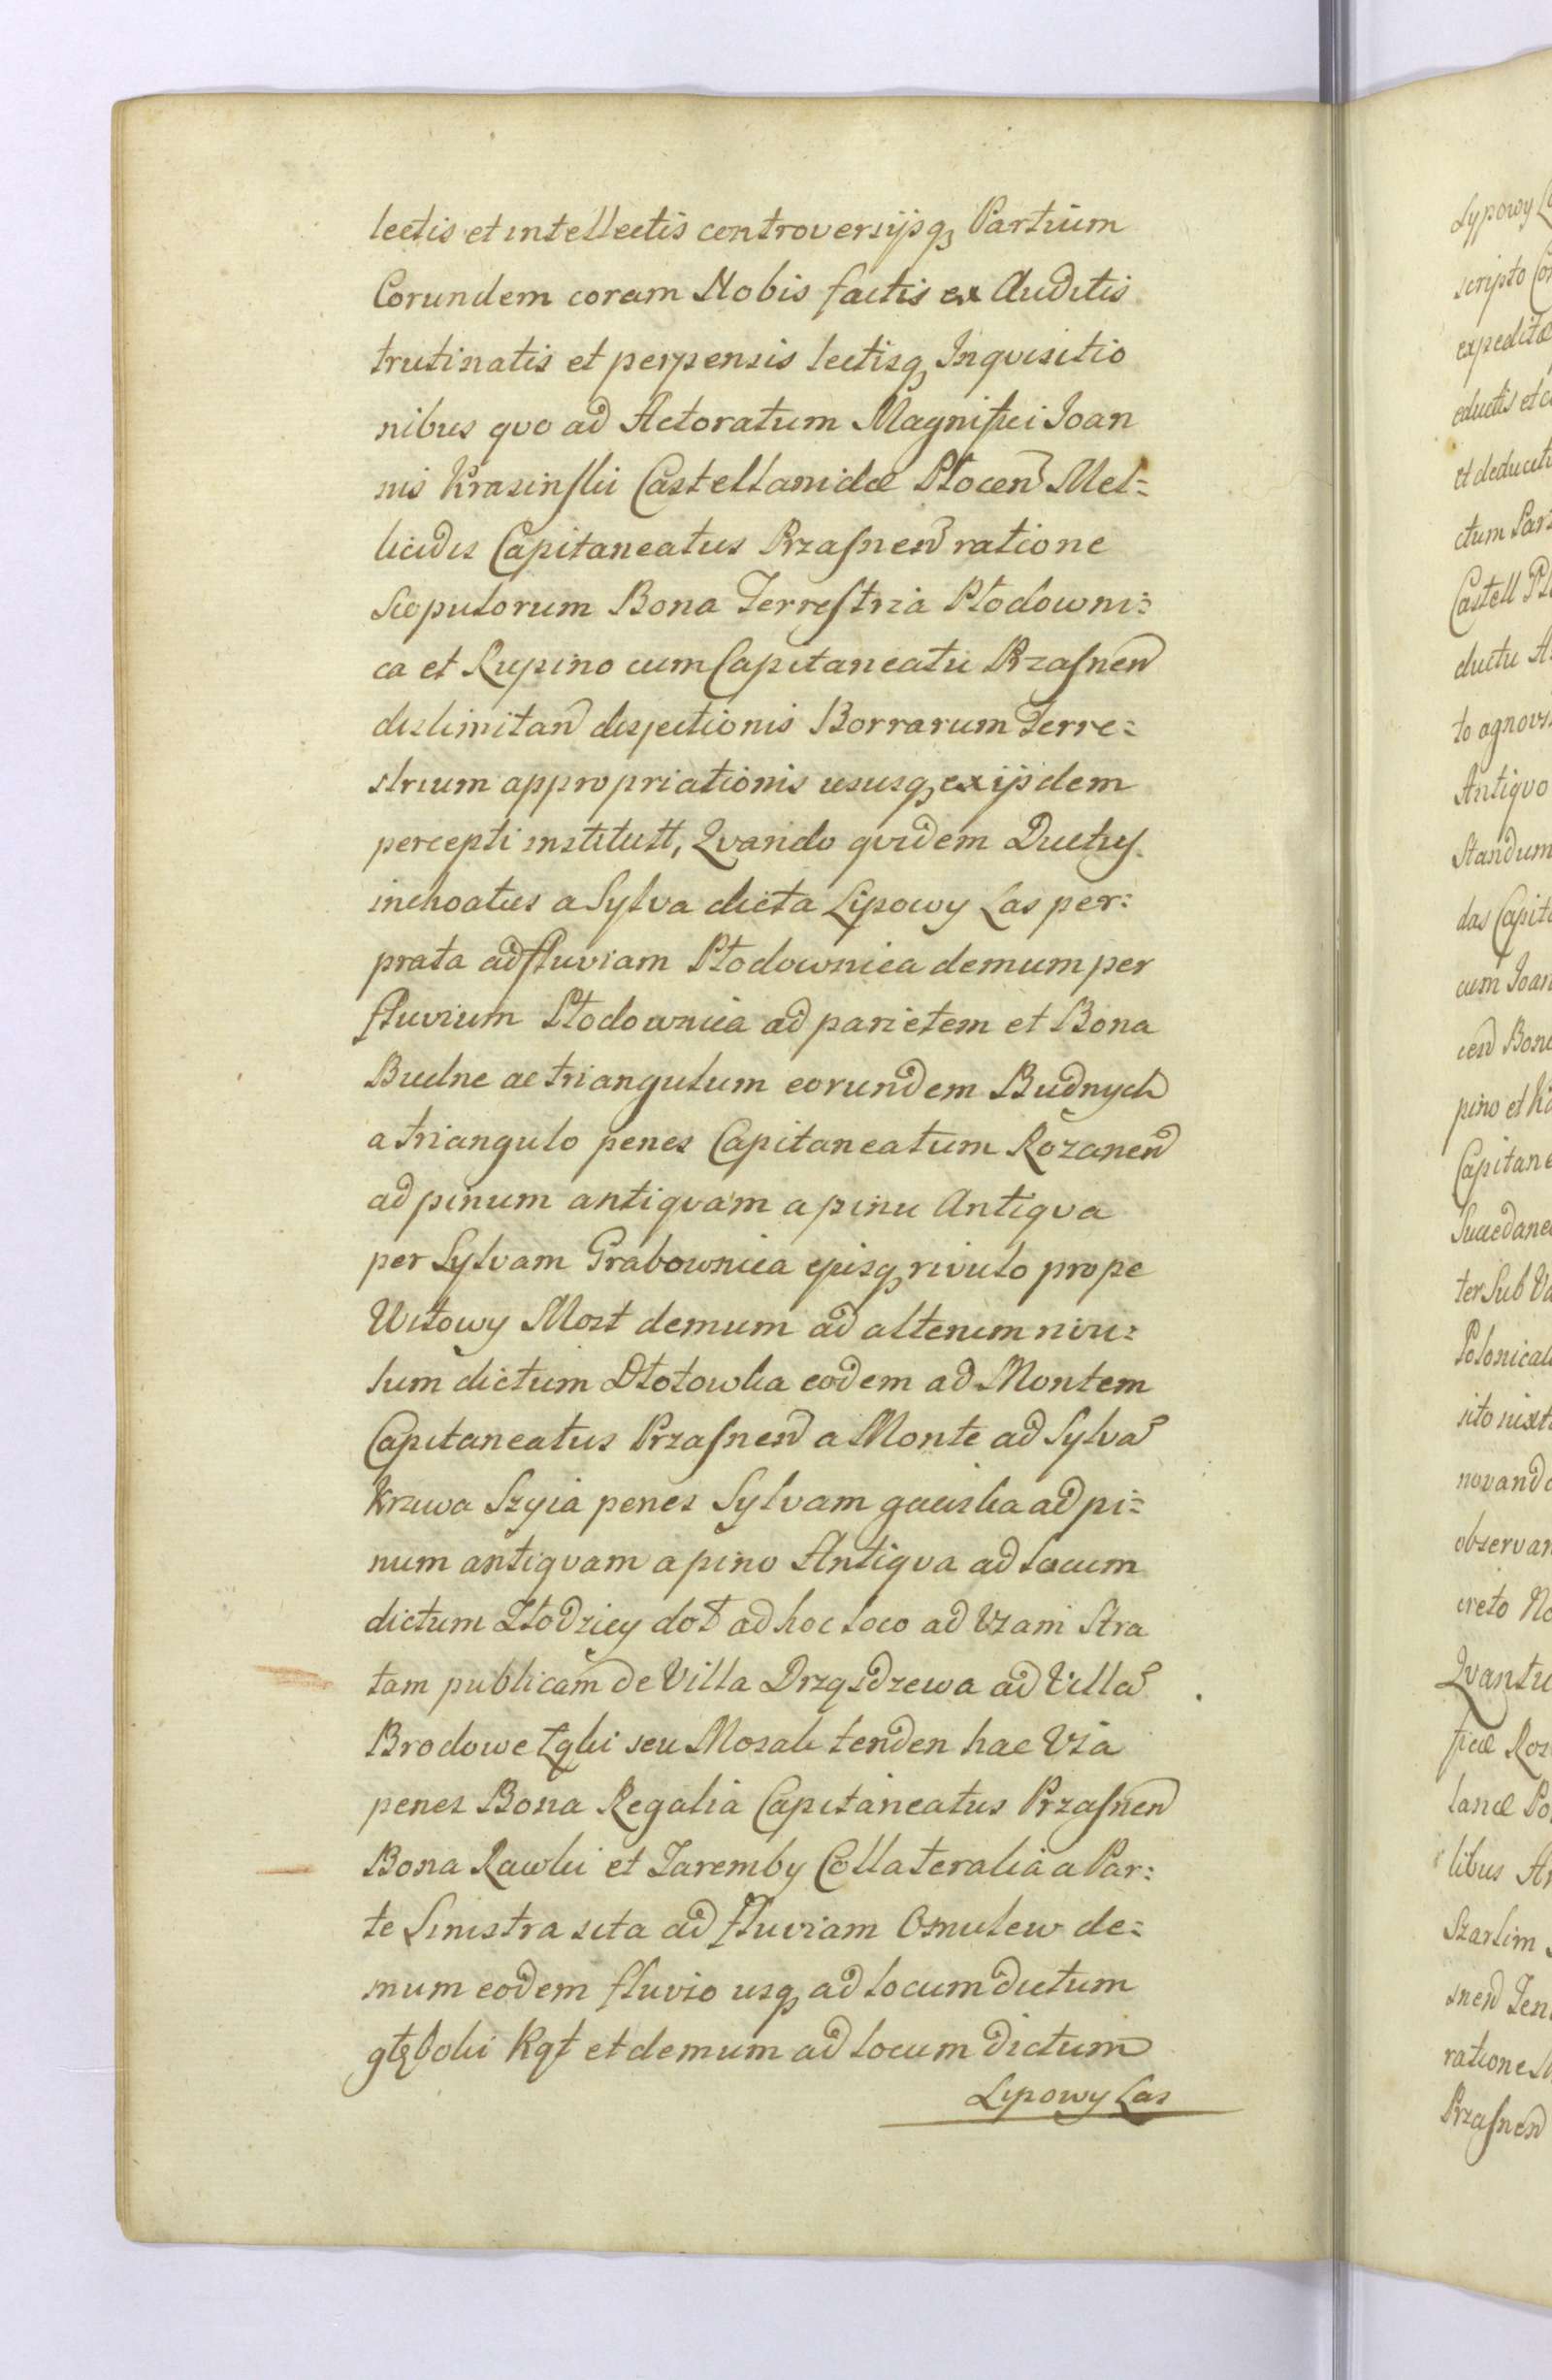 lectis et intellectis controversijsq₃ Partium
Eorundem coram Nobis factis ex Auditis
trutinatis et perpensis lectisq₃ Inqvisitio
nibus qvo ad Actoratum Magnifici Joan
nis Krasinskii Castellanidæ Płocen̄ Mel=
licidis Capitaneatus Przasnen̄ ratione
Scopulorum Bona Terrestria Płodowni=
ca et Rupino cum Capitaneatu Przasnen̄
dislimitan̄ disjectionis Borrarum Terre=
strium appropriationis ususq₃ ex ijsdem
percepti institutt, Qvando qvidem Ductus
inchoatus a Sylva dicta Lipowy Las per=
prata ad fluviam Płodownica demum per
fluvium Płodownica ad parietem et Bona
Budne ac triangulum eorundem Budnych
a triangulo penes Capitaneatum Rozanen̄
ad pinum antiqvam a pinu Antiqva
per Sylvam Grabownica ejusq₃ rivulo prope
Witowy Most demum ad alterum rivu=
lum dictum Dłotowka eodem ad Montem
Capitaneatus Przasnen̄ a Monte ad Sylva͂
Krzwa Szyia penes Sylvam gaciska ad pi=
num antiqvam a pino Antiqva ad locum
dictum Złodziey doł ad hoc loco ad Viam Stra
tam publicam de Villa Drzązdzewa ad Villa͂
Brodowe Łąki seu Mosak tenden hac Via
penes Bona Regalia Capitaneatus Przasnen̄
Bona Rawki et Zaremby Collateralia a Par=
te Sinistra sita ad fluviam Omulew de=
mum eodem fluvio usq₃ ad locum dictum
głęboki Kąt et demum ad locum dictum
Lipowy Las
Lypowy
scripto
expeditæ
eductis et
et deducti
ctum
Castell
ductu
to agnovi
Antiqvo
Standum
das
cum Joan
cen̄
pino et
Capitane
Succedane
ter Sub
Polonicali
sito
novand
observan
creto
Qvantu
ficæ
lanæ
libus
snen̄
ratione
Przasnen̄